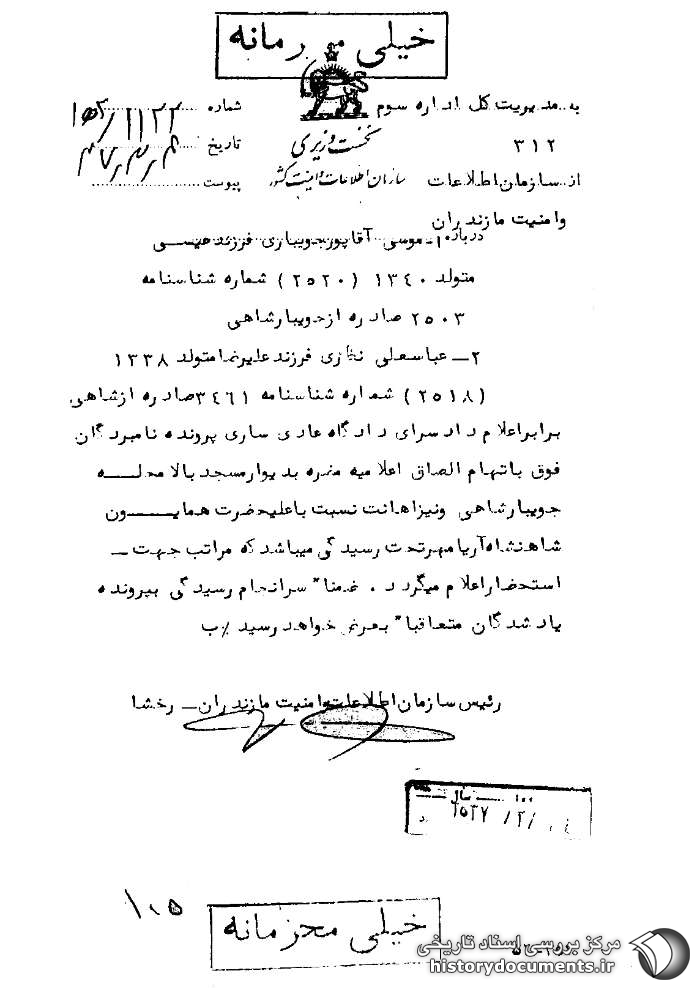 خیلی محرمانه
به مدیریت کل اداره سوم
۳۱۲
از سازمان اطلاعات
وامنیت مازندران
نخست وزیری
سازمان اطلاعات و امنیت کشور
شماره ۱۵۳/۱۱۲۲
تاریخ
پیوست
درباره ۱ـ موسی آقاپورجویباری فرزند عیسی
متولد ۱۳٤۰ (۲۵۲۰) شماره شناسنامه
۲۵۰۳ صادره ازجویبارشاهی
۲ـ عباسعلی نظری فرزند علیرضا متولد ۱۳۳۸
(۲۵۱۸) شماره شناسنامه ۳٤٦۱ صادره ازشاهی
برابراعلام دادسرای دادگاه عادی ساری پرونده نامبردگان
فوق باتهام الصاق اعلامیه مضره بدیوارمسجد بالا محلـــه
جویبارشاهی ونیزاهانت نسبت باعلیحضرت همایـــون
شاهنشاه آریامهرتحت رسیدگی میباشد که مراتب جهت ـ
استحضاراعلام میگردد . ضمنا" سرانجام رسیدگی بپرونده
یادشدگان متعاقبا" بعرض خواهد رسید /ب
رئیس سازمان اطلاعات وامنیت مازندران ـ رخشا
۱۰۵
خیلی محرمانه
مرکز بررسی اسناد تاریخی
historydocuments.ir